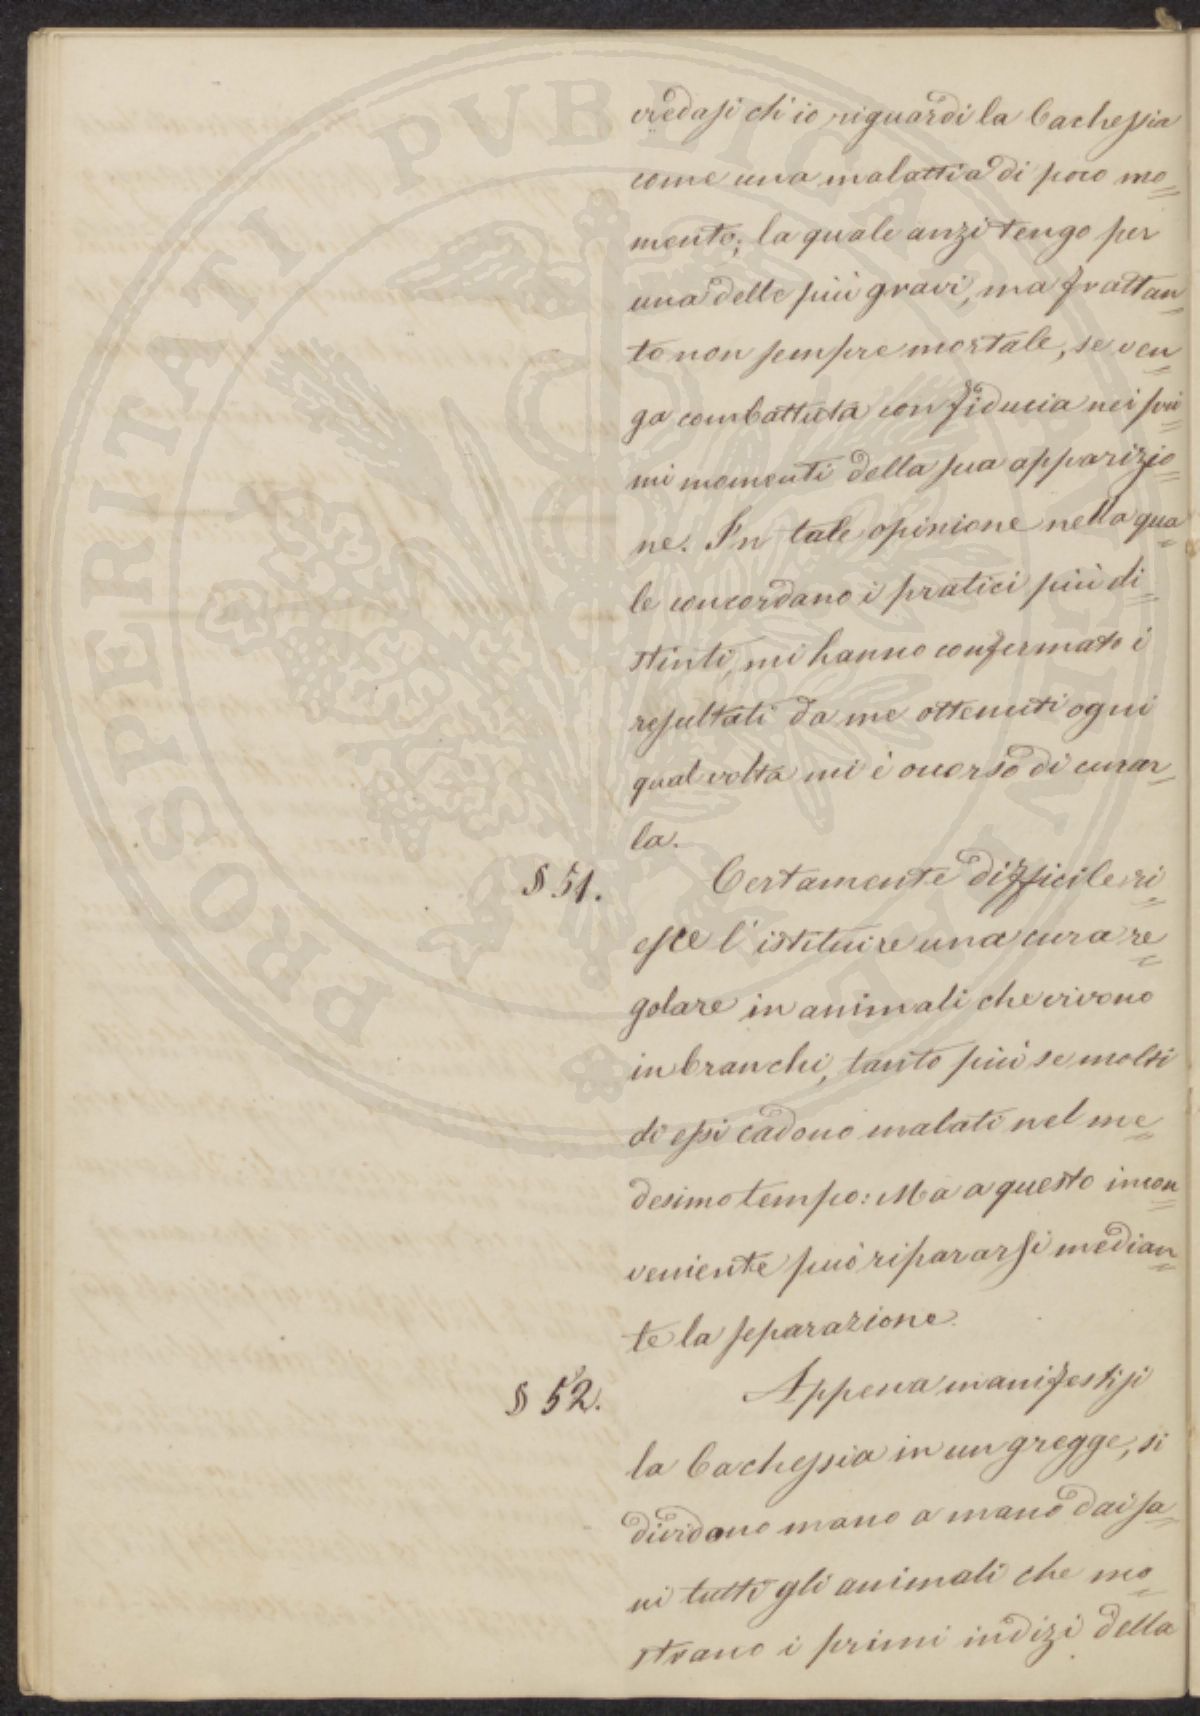 credasi ch'io riguardi la Cachessia
come una malattia di poco mo=
mento; la quale anzi tengo per
una delle più gravi, ma frattan=
to non sempre mortale, se ven=
ga combattuta con fiducia nei pri=
mi momenti della sua apparizio=
ne. In tale opinione nella qua=
le concordano i pratici più di=
stinti, mi hanno confermato i
resultati da me ottenuti ogni
qual volta mi è occorso di curar=
la.
§ 51. Certamente difficile ri=
esce l'istituire una cura re=
golare in animali che vivono
in branchi, tanto più se molti
di essi cadono malati nel me=
desimo tempo: Ma a questo incon=
veniente può ripararsi median=
te la separazione.
§ 52. Appena manifestisi
la Cachessia in un gregge, si
dividano mano a mano dai sa=
ni tutti gli animali che mo=
strano i primi indizi della
PROSPERITATI PVBLICAE